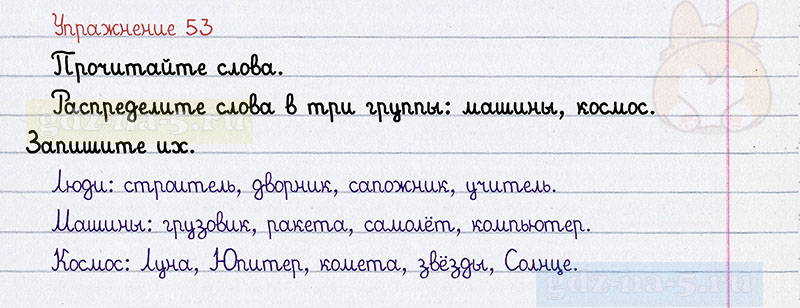 Упражнение 53
Прочитайте слова.
Распределите слова в три группы: машины, космос.
Запишите их.
Люди: строитель, дворник, сапожник, учитель.
Машины: грузовик, ракета, самолёт, компьютер.
Космос: Луна, Юпитер, комета, звёзды, Солнце.
gdz-na-5.ru
gdz-na-5.ru